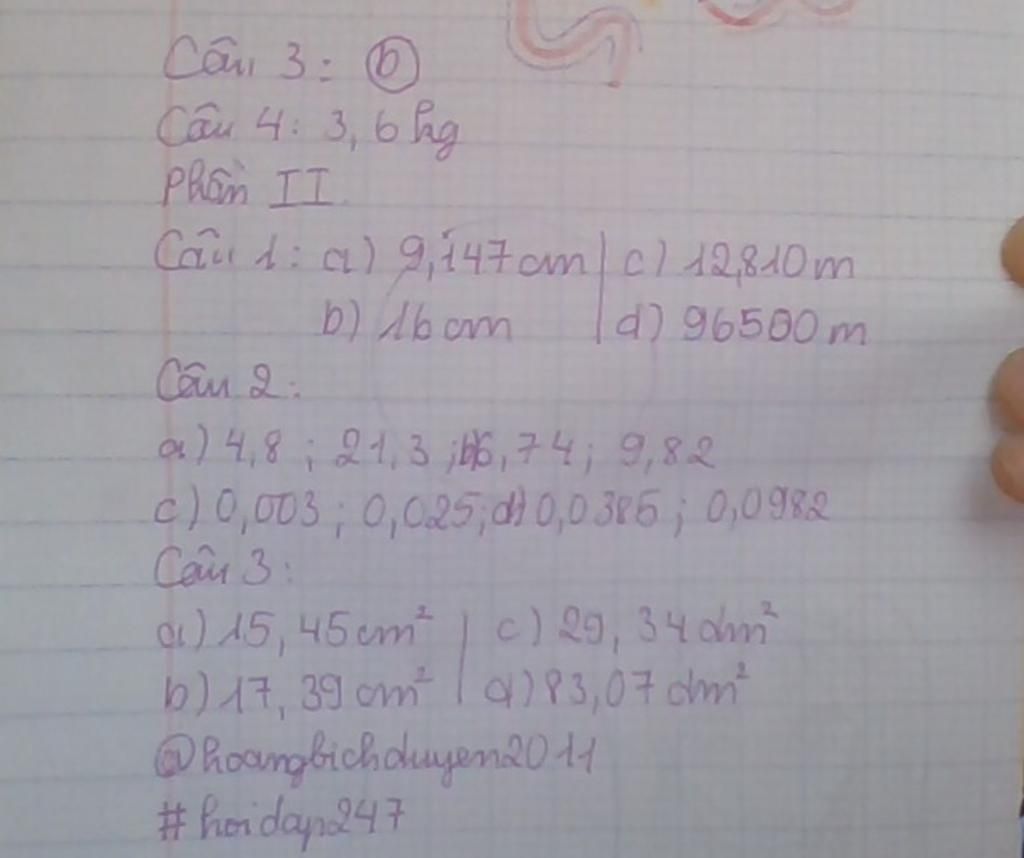 Câu 3: b
Câu 4: 3,6 kg
Phần II
Câu 1: a) 9,147cm | c) 12,810m
b) 16cm | d) 96500m
Câu 2:
a) 4,8 ; 21,3 ; b) 6,74 ; 9,82
c) 0,003 ; 0,025 ; d) 0,0385 ; 0,0982
Câu 3:
a) 15,45cm² | c) 29,34dm²
b) 17,39cm² | d) 83,07dm²
@hoangbichduyen2011
#hoidap247